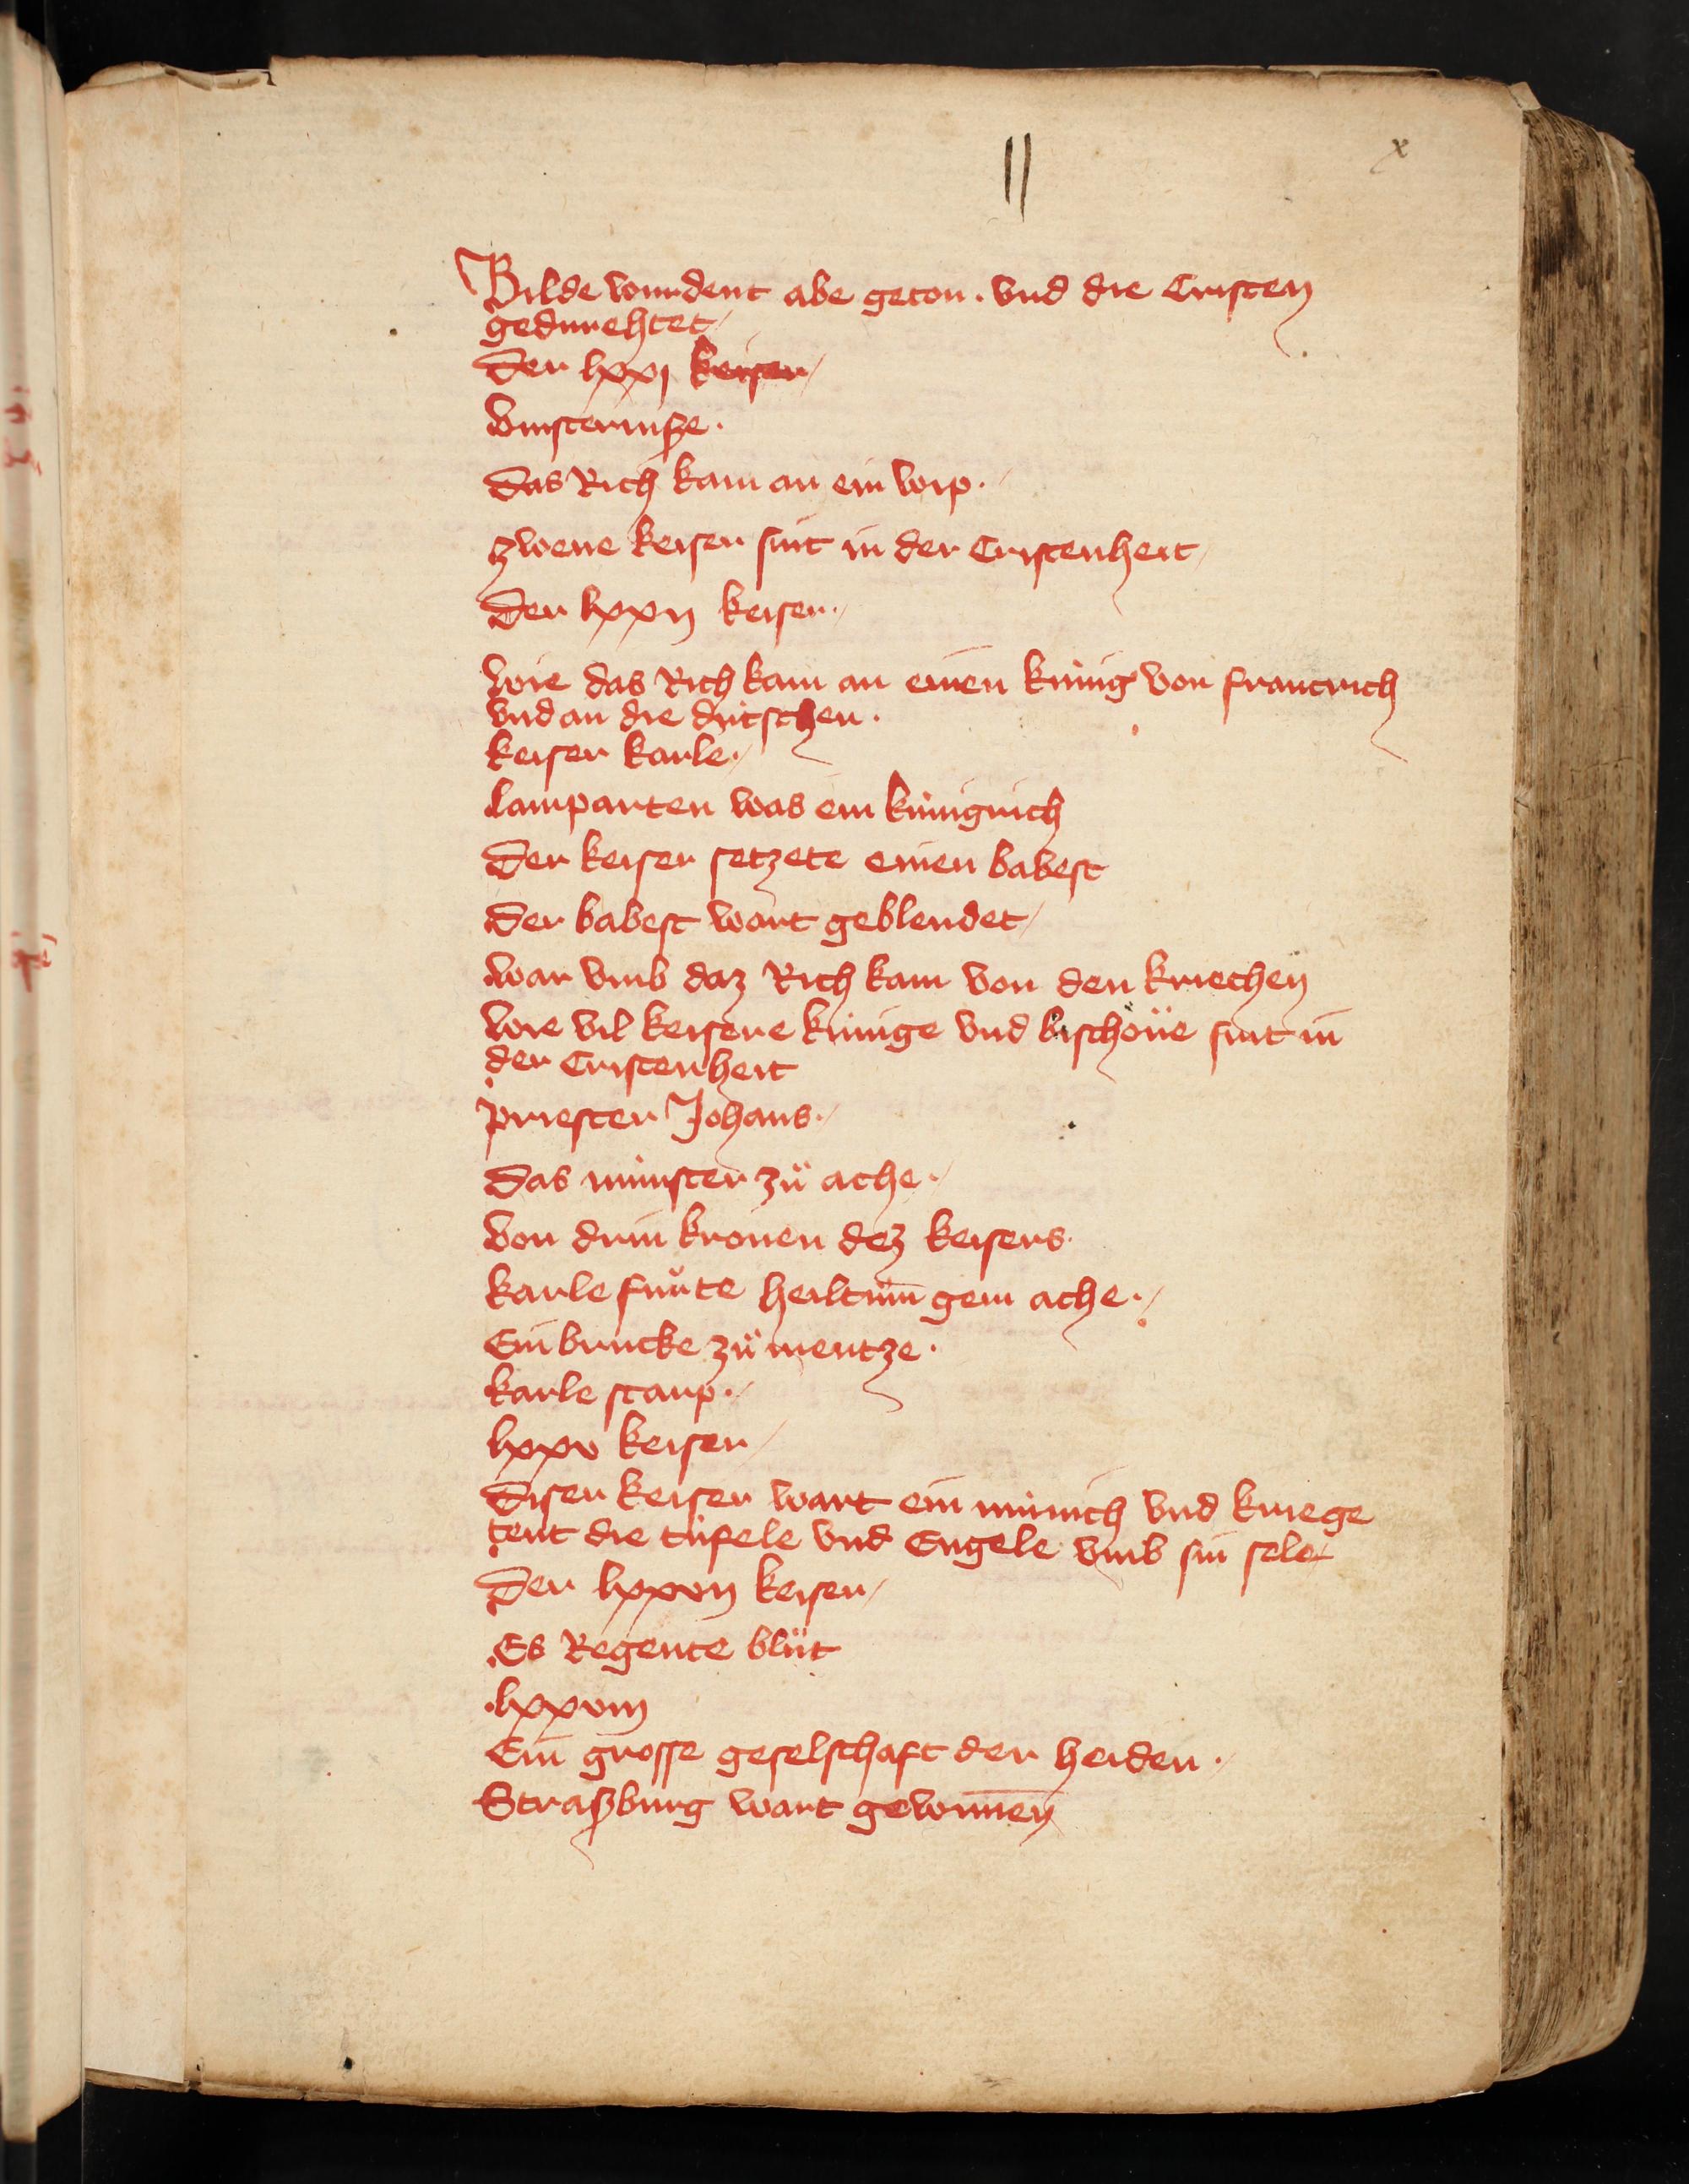 ||
x
Bilde wurdent abe geton . vnd die Cristen
gedurehtet
Der lxxj keiser
vinsternisze .
Das Rich kam an ein wip .
zwene keiser sint in der Cristenheit
Der lxxij keiser .
Wie das Rich kam an einen kúnig von franckrich
vnd an die dútschen .
keiser karle .
lamparten was ein kúnigrich
Der keiser setzete einen babest
Der babest wart geblendet
war vmb daz Rich kam von den kriechen
Wie vil keisere kúnige vnd bischöue sint in
der Cristenheit
priester Johans .
Das múnster zů ache .
Von drin kronen dez keisers .
karle fůrte heiltům gein ache .
Ein brucke zů mentze .
karle starp .
lxxv keiser
Diser keiser wart ein múnich vnd kriege
tent die túfele vnd Engele vmb sin sele
Der lxxvij keiser
Es Regente blůt
. lxxviij
Ein grosse geselschaft der heiden .
Straszburg wart gewunnen